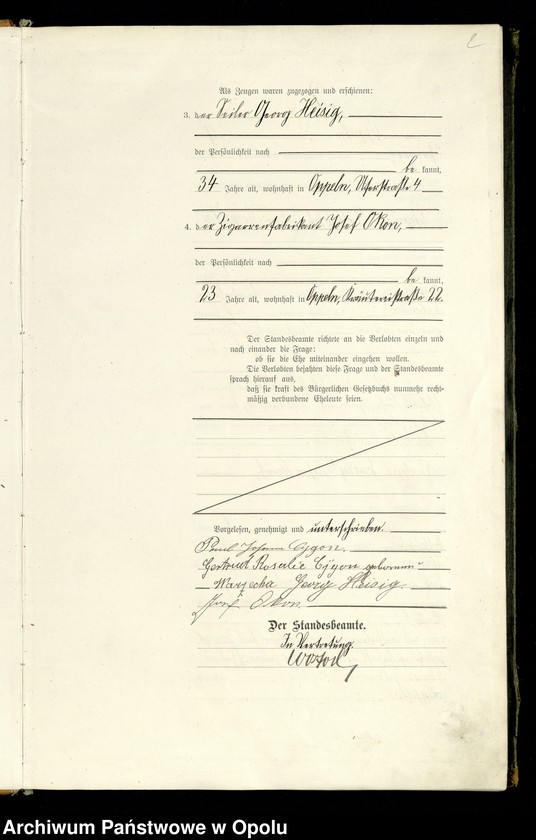 Als Zeugen waren zugezogen und erschienen:
3. der Seiler Georg Heisig,
der Persönlichkeit nach
be kannt,
34 Jahre alt, wohnhaft in Oppeln, Uferstraße 4
4. der Zigarrenfabrikant Josef Okon,
der Persönlichkeit nach
be kannt,
23 Jahre alt, wohnhaft in Oppeln, Kräutereistraße 22.
Der Standesbeamte richtete an die Verlobten einzeln und
nach einander die Frage:
ob sie die Ehe miteinander eingehen wollen.
Die Verlobten bejahten diese Frage und der Standesbeamte
sprach hierauf aus,
daß sie kraft des Bürgerlichen Gesetzbuchs nunmehr recht-
mäßig verbundene Eheleute seien.
Vorgelesen, genehmigt und unterschrieben.
Paul Johann Cygon.
Gertrud Rosalie Cÿgon geborene
Warzecha Georg Heisig.
Josef Okon.
Der Standesbeamte.
In Vertretung.
Archiwum Państwowe w Opolu